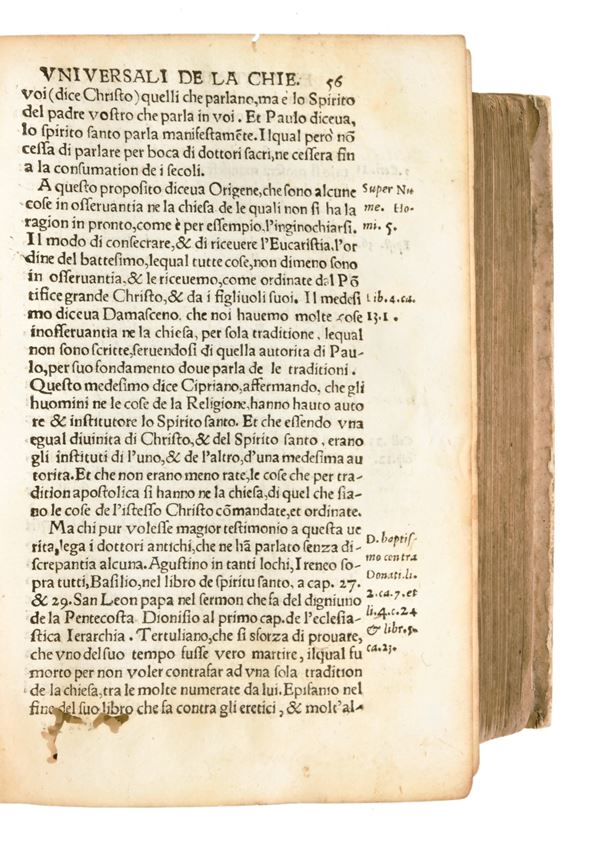 VNIVERSALI DE LA CHIE. 56
voi (dice Christo) quelli che parlano, ma è lo Spirito
del padre vostro che parla in voi. Et Paulo diceua,
lo spirito santo parla manifestamēte. Ilqual però nō
cessa di parlare per boca di dottori sacri, ne cessera fin
a la consumation de i secoli.
A questo proposito diceua Origene, che sono alcune
cose in osseruantia ne la chiesa de le quali non si ha la
ragion in pronto, come è per essempio, l'inginochiarsi.
Il modo di consecrare, & di riceuere l'Eucaristia, l'or
dine del battesimo, lequal tutte cose, non dimeno sono
in osseruantia, & le riceuemo, come ordinate dal Pō
tifice grande Christo, & da i figliuoli suoi. Il medesi
mo diceua Damasceno, che noi hauemo molte cose
inosseruantia ne la chiesa, per sola traditione, lequal
non sono scritte, seruendosi di quella autorita di Pau-
lo, per suo fondamento doue parla de le traditioni.
Questo medesimo dice Cipriano, affermando, che gli
huomini ne le cose de la Religione, hanno hauto auto
re & institutore lo Spirito santo. Et che essendo vna
egual diuinita di Christo, & del Spirito santo, erano
gli instituti di l'uno, & de l'altro, d'una medesima au
torita. Et che non erano meno rate, le cose che per tra-
dition apostolica si hanno ne la chiesa, di quel che sia-
no le cose de l'istesso Christo cōmandate, et ordinate.
Ma chi pur volesse magior testimonio a questa ue
rita, lega i dottori antichi, che ne hā parlato senza di-
screpantia alcuna. Agustino in tanti lochi, Ireneo so-
pra tutti, Basilio, nel libro de spiritu santo, a cap. 27.
& 29. San Leon papa nel sermon che fa del digniuno
de la Pentecosta Dionisio al primo cap. de l'eclesia-
stica Ierarchia. Tertuliano, che si sforza di prouare,
che vno del suo tempo fusse vero martire, ilqual fu
morto per non voler contrafar ad vna sola tradition
de la chiesa, tra le molte numerate da lui. Epifanio nel
fine del suo libro che fa contra gli eretici, & molt'al-
Super Nu
me. Ho-
mi. 5.
Lib. 4. ca.
13.1.
D. baptis-
mo contra
Donati. li.
2. ca. 7. et
li. 4. c. 24
& libr. 5.
ca. 23.